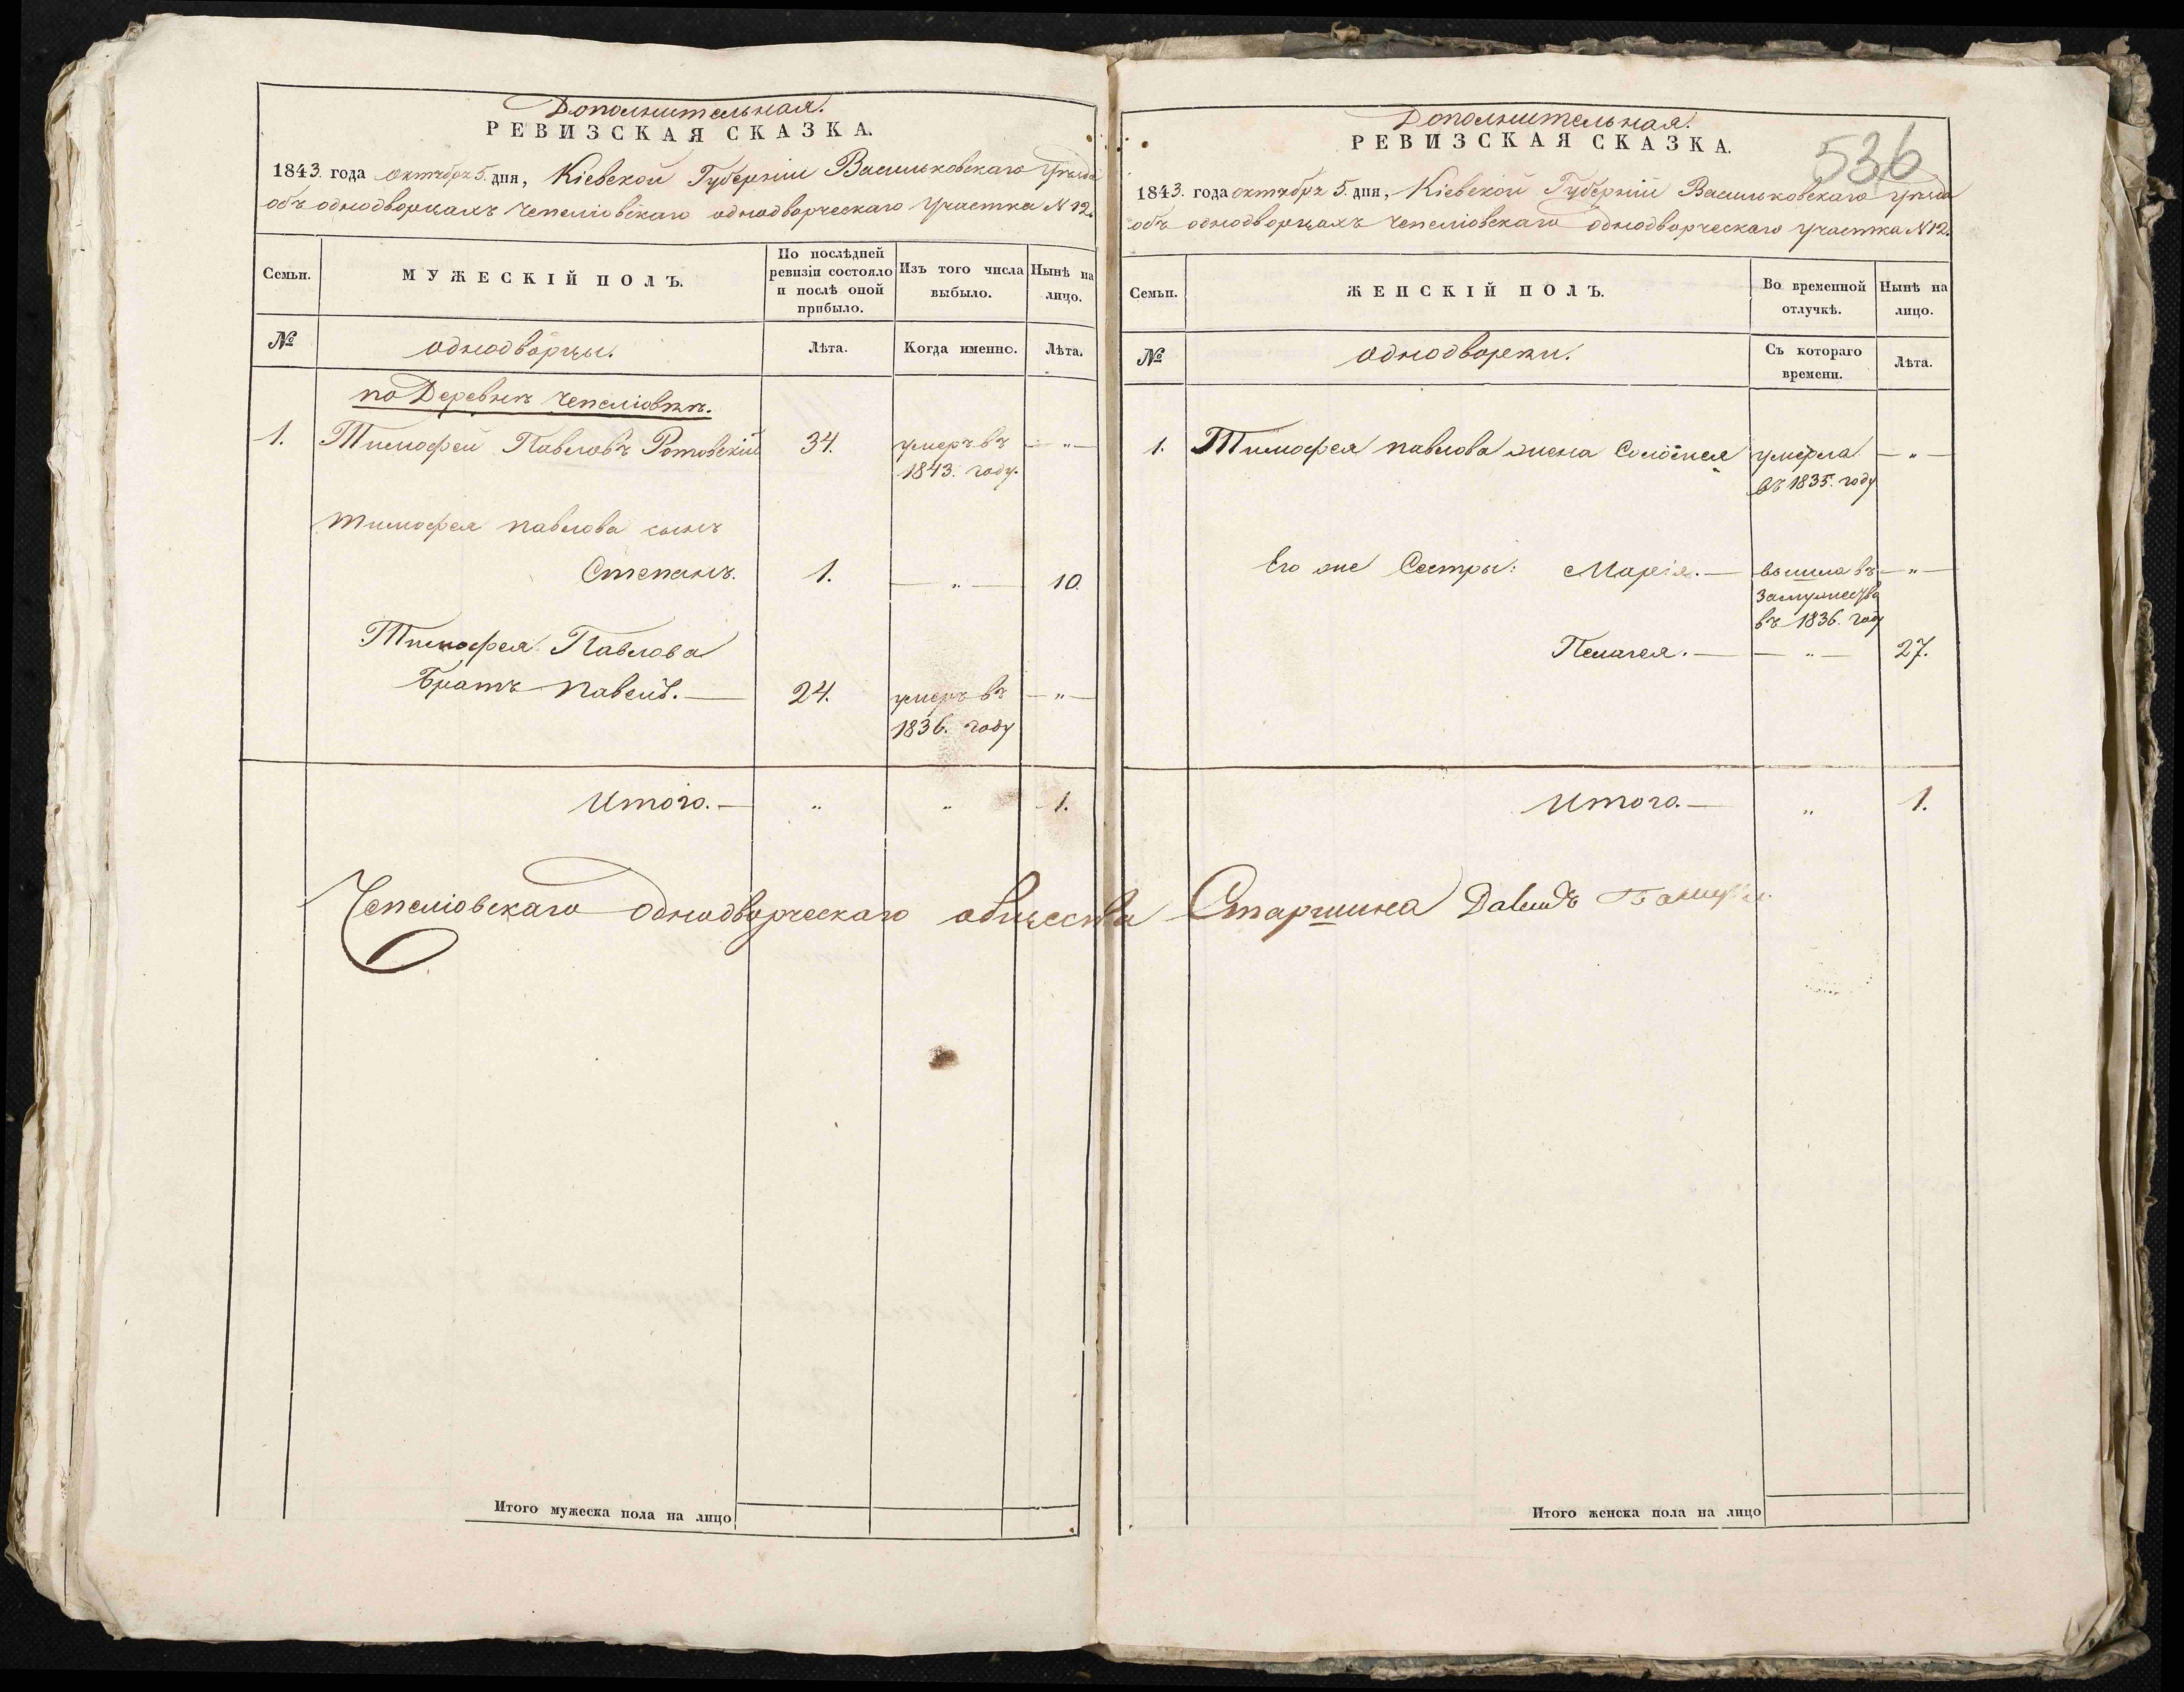 Дополнительная.
РЕВИЗСКАЯ СКАЗКА.
1843. года октября 5. дня, Кіевской Губерніи Васильковскаго Уѣзда
объ однодворцахъ Чепеліовскаго однодворческаго участка N 12.
Семьи.
МУЖЕСКІЙ ПОЛЪ.
По послѣдней
ревизіи состояло
и послѣ оной
прибыло.
Изъ того числа
выбыло.
Нынѣ на
лицо.
№
однодворцы.
Лѣта.
Когда именно.
Лѣта.
по Деревнѣ Чепеліовкѣ.
1. Тимофей Павловъ Ротовскій 34. умеръ въ — „ —
1843. году.
Тимофея Павлова сынъ
Степанъ. 1. — „ — 10.
Тимофея Павлова
Братъ Павелъ. — 24. умеръ въ — „ —
1836. году
Итого. — „ „ 1.
Чепеліовскаго Однодворческаго общества Старшина Давидъ
Итого мужеска пола на лицо
Дополнительная.
РЕВИЗСКАЯ СКАЗКА.
536
1843. года октября 5. дня, Кіевской Губерніи Васильковскаго уѣзда
объ однодворцахъ Чепеліовскаго Однодворческаго участка N 12.
Семьи.
ЖЕНСКІЙ ПОЛЪ.
Во временной
отлучкѣ.
Нынѣ на
лицо.
№
однодворки.
Съ котораго
времени.
Лѣта.
1. Тимофея Павлова жена умерла — „ —
въ 1835. году
Его же Сестры: Марія. — вышла въ — „ —
Замужества
въ 1836. году
Пелагея. — — „ — 27.
Итого. — „ 1.
Итого женска пола на лицо